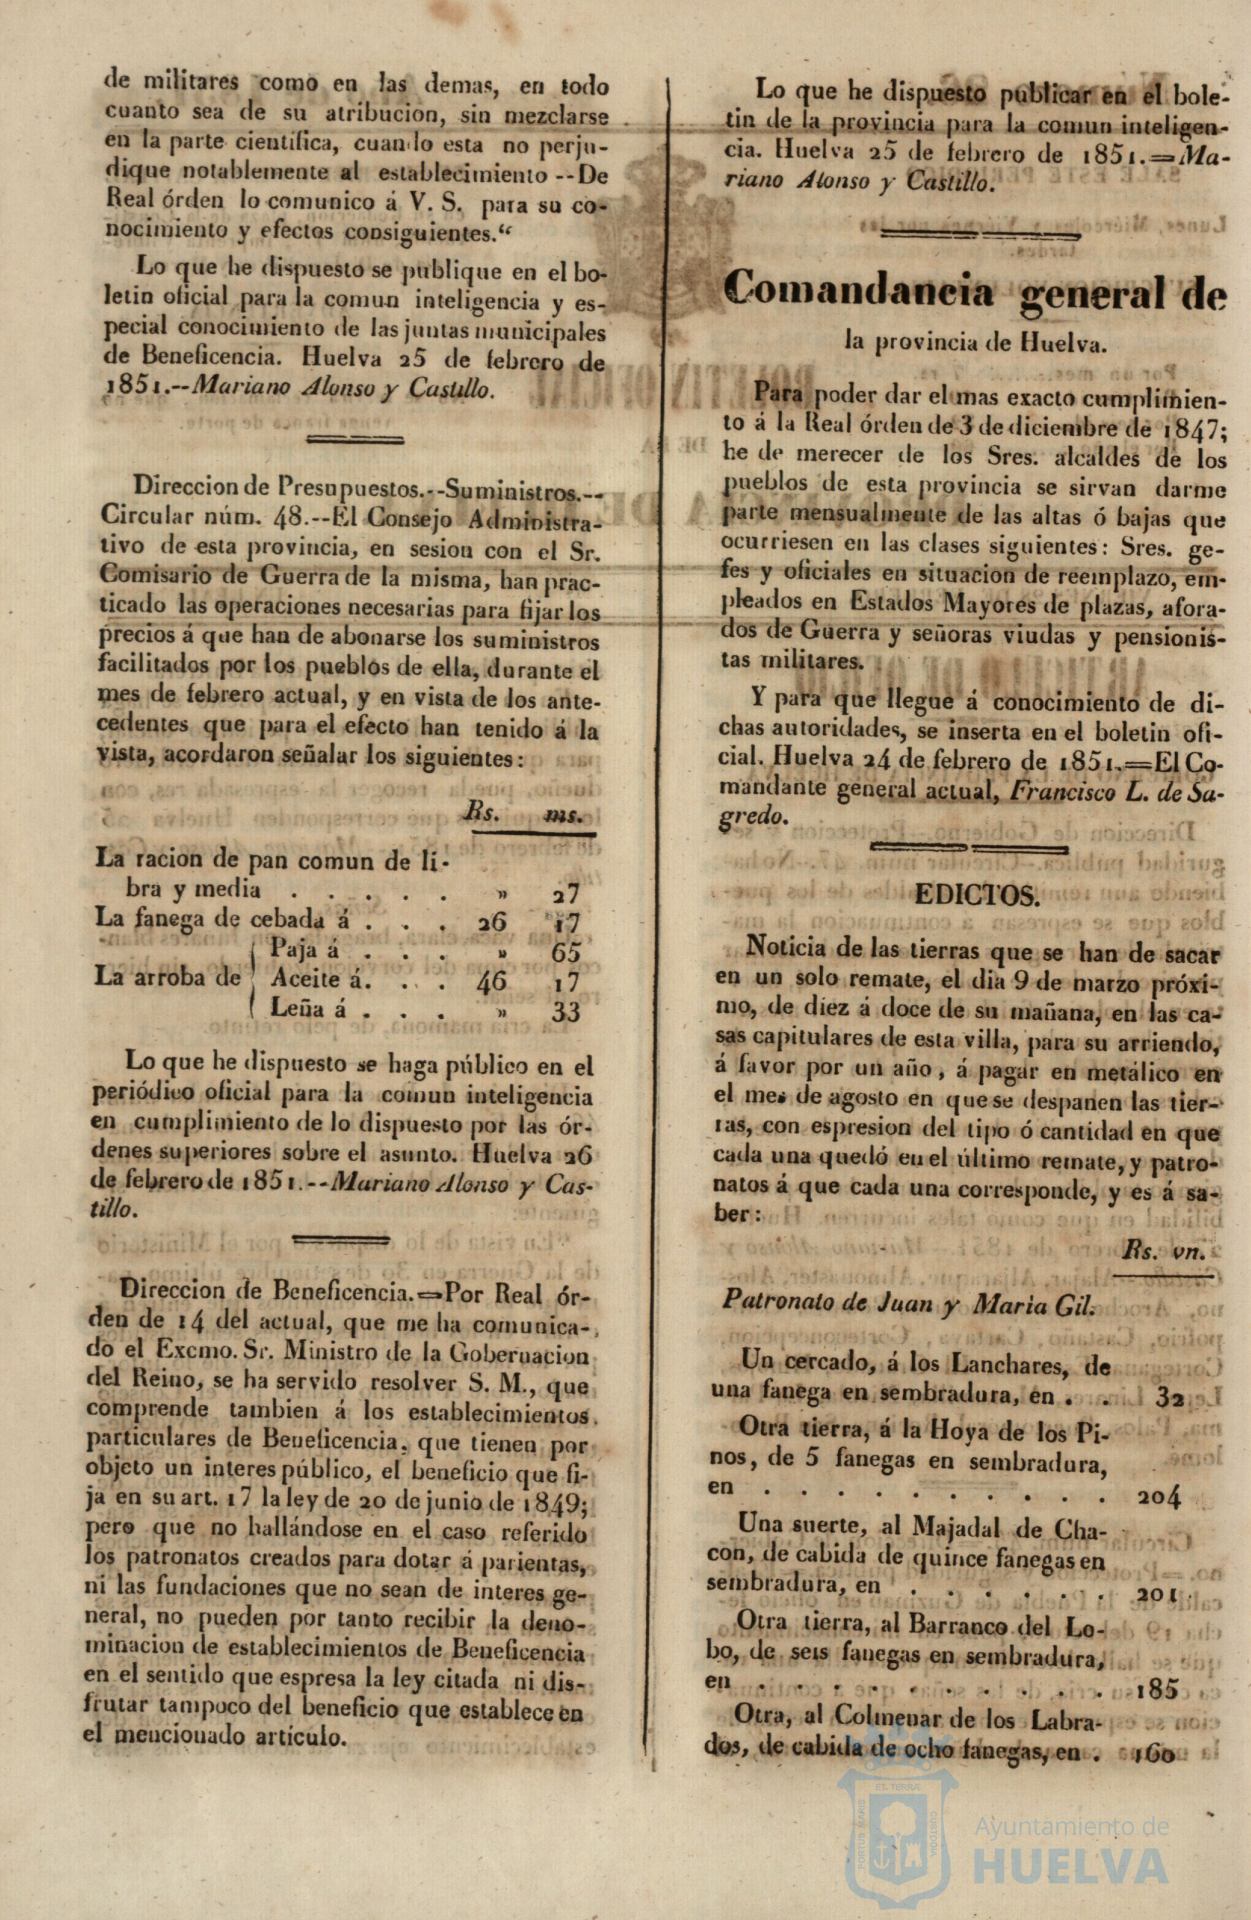 de militares como en las demas, en todo
cuanto sea de su atribucion, sin mezclarse
en la parte cientifica, cuando esta no perju-
dique notablemente al establecimiento --De
Real órden lo comunico á V. S. para su co-
nocimiento y efectos consiguientes.“
Lo que he dispuesto se publique en el bo-
letin oficial para la comun inteligencia y es-
pecial conocimiento de las juntas municipales
de Beneficencia. Huelva 25 de febrero de
1851.--Mariano Alonso y Castillo.
Direccion de Presupuestos.--Suministros.--
Circular núm. 48.--El Consejo Administra-
tivo de esta provincia, en sesion con el Sr.
Comisario de Guerra de la misma, han prac-
ticado las operaciones necesarias para fijar los
precios á que han de abonarse los suministros
facilitados por los pueblos de ella, durante el
mes de febrero actual, y en vista de los ante-
cedentes que para el efecto han tenido á la
vista, acordaron señalar los siguientes:
Rs. ms.
La racion de pan comun de li-
bra y media . . . . . » 27
La fanega de cebada á . . . 26 17
Paja á . . . » 65
La arroba de Aceite á. . . . 46 17
Leña á . . . » 33
Lo que he dispuesto se haga público en el
periódico oficial para la comun inteligencia
en cumplimiento de lo dispuesto por las ór-
denes superiores sobre el asunto. Huelva 26
de febrero de 1851.--Mariano Alonso y Cas-
tillo.
Direccion de Beneficencia.=Por Real ór-
den de 14 del actual, que me ha comunica-
do el Excmo. Sr. Ministro de la Gobernacion
del Reino, se ha servido resolver S. M., que
comprende tambien á los establecimientos
particulares de Beneficencia, que tienen por
objeto un interes público, el beneficio que fi-
ja en su art. 17 la ley de 20 de junio de 1849;
pero que no hallándose en el caso referido
los patronatos creados para dotar á parientas,
ni las fundaciones que no sean de interes ge-
neral, no pueden por tanto recibir la deno-
minacion de establecimientos de Beneficencia
en el sentido que espresa la ley citada ni dis-
frutar tampoco del beneficio que establece en
el mencionado artículo.
Lo que he dispuesto publicar en el bole-
tin de la provincia para la comun inteligen-
cia. Huelva 25 de febrero de 1851.=Ma-
riano Alonso y Castillo.
Comandancia general de
la provincia de Huelva.
Para poder dar el mas exacto cumplimien-
to á la Real órden de 3 de diciembre de 1847;
he de merecer de los Sres. alcaldes de los
pueblos de esta provincia se sirvan darme
parte mensualmente de las altas ó bajas que
ocurriesen en las clases siguientes: Sres. ge-
fes y oficiales en situacion de reemplazo, em-
pleados en Estados Mayores de plazas, afora-
dos de Guerra y señoras viudas y pensionis-
tas militares.
Y para que llegue á conocimiento de di-
chas autoridades, se inserta en el boletin ofi-
cial. Huelva 24 de febrero de 1851.=El Co-
mandante general actual, Francisco L. de Sa-
gredo.
EDICTOS.
Noticia de las tierras que se han de sacar
en un solo remate, el dia 9 de marzo próxi-
mo, de diez á doce de su mañana, en las ca-
sas capitulares de esta villa, para su arriendo,
á favor por un año, á pagar en metálico en
el mes de agosto en que se despanen las tier-
ras, con espresion del tipo ó cantidad en que
cada una quedó en el último remate, y patro-
natos á que cada una corresponde, y es á sa-
ber:
Rs. vn.
Patronato de Juan y Maria Gil.
Un cercado, á los Lanchares, de
una fanega en sembradura, en . . 32
Otra tierra, á la Hoya de los Pi-
nos, de 5 fanegas en sembradura,
en . . . . . . . . . . 204
Una suerte, al Majadal de Cha-
con, de cabida de quince fanegas en
sembradura, en . . . . . . 201
Otra tierra, al Barranco del Lo-
bo, de seis fanegas en sembradura,
en . . . . . . . . . . 185
Otra, al Colmenar de los Labra-
dos, de cabida de ocho fanegas, en . 160
ET TERRÆ
PORTUS MARIS
CUSTODIA
Ayuntamiento de
HUELVA